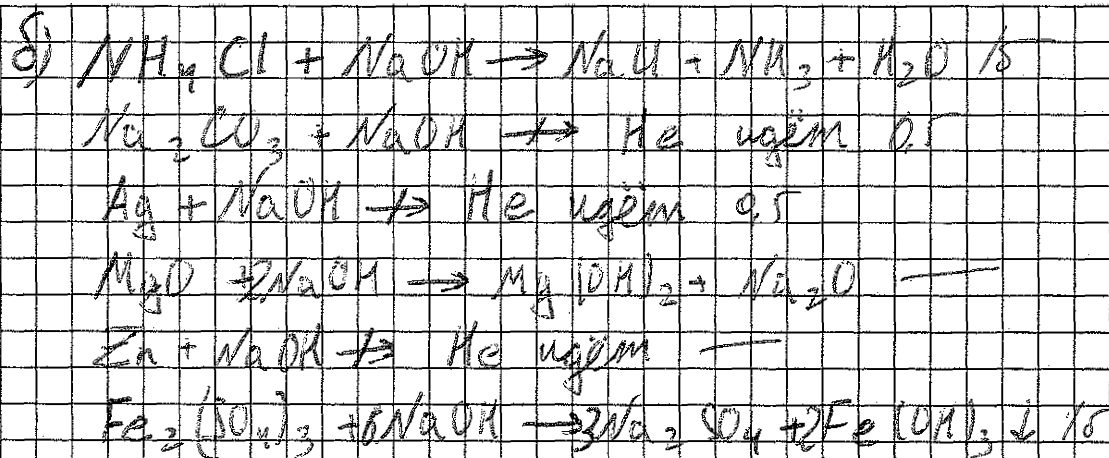 б) NH₄Cl + NaOH → NaCl + NH₃ + H₂O 1б
Na₂CO₃ + NaOH ↛ Не идёт 0.5
Ag + NaOH ↛ Не идёт 0.5
MgO + 2NaOH → Mg(OH)₂ + Na₂O —
Zn + NaOH ↛ Не идёт —
Fe₂(SO₄)₃ + 6NaOH → 3Na₂SO₄ + 2Fe(OH)₃↓ 1б